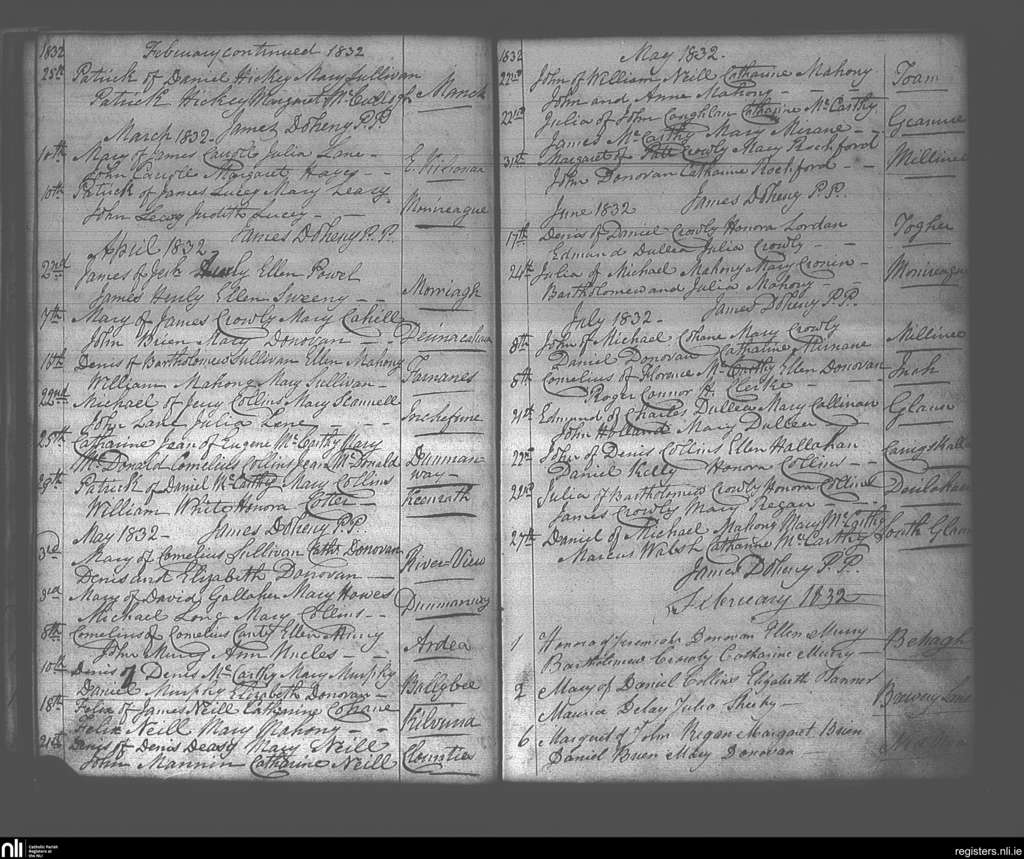 1832 February continued 1832
25th Patrick of Daniel Hickey Mary Sullivan
Patrick Hickey Margaret Manch
James Doheny P.P.
March 1832
10th Mary of James Carroll Julia Lane
John Carroll Margaret Hayes
10th Patrick of James Lucey Mary Leary
John Judith Lucey Monireague
James Doheny P.P.
April 1832
22nd James of Ellen Powel
James Hurly Ellen Sweeny
7th Mary of James Crowly Mary Cahill
John Brien Mary Donovan
18th Denis of Bartholomew Sullivan Ellen Mahony
William Mahony Mary Sullivan
22nd Michael of Jerry Collins Mary Scannell
John Lane Julia Lane
25th Catharine Jean of Eugene McCarthy Mary
McDonald Cornelius Collins Jean McDonald Dunman
way
28th Patrick of Daniel McCarthy Mary Collins
William White Honora Cotter Keenrath
May 1832 James Doheny P.P.
3rd Mary of Cornelius Sullivan Cath: Donovan
Denis and Elizabeth Donovan River View
3rd Mary of David Gallaher Mary Howes
Michael Long Mary Collins Dunmanway
8th Cornelius of Cornelius Canty Ellen
John Ann Ardea
10th Denis of Denis McCarthy Mary Murphy
Daniel Murphy Elizabeth Donovan Ballybee
18th Felix of James Neill Catherine Cohane
Felix Neill Mary Mahony
21st Denis of Denis Deasy Mary Neill
John Mannin Catharine Neill
1832 May 1832.
22nd John of William Neill Catharine Mahony
John and Anne Mahony Toam
22nd Julia of John Coughlan Catharine McCarthy
James McCarthy Mary
31st Margaret of Patt Crowly Mary Rochford
John Donovan Catharine Rochford
June 1832 James Doheny P.P.
17th Denis of Daniel Crowly Honora Lordan
Edmund Dullea Julia Crowly Togher
24th Julia of Michael Mahony Mary Cronin
Bartholomew and Julia Mahony Monireague
James Doheny P.P.
July 1832
8th John of Michael Cohane Mary Crowly
Daniel Donovan Catharine
8th Cornelius of Florence McCarthy Ellen Donovan
Roger Connor H. Clerke Inch
21st Edmund of Charles Dullea Mary Callinan
John Holland Mary Dullea Glaun
22nd John of Denis Collins Ellen Hallahan
Daniel Kelly Honora Collins
22nd Julia of Bartholomew Crowly Honora Collins
James Crowly Mary Regan
27th Daniel of Michael Mahony Mary McCarthy
Marcus Walsh Catharine McCarthy South Glaun
James Doheny P.P.
February 1832
1 Honora of Jeremiah Donovan Ellen Murry
Bartholomew Crowly Catharine Murry Behagh
2 Mary of Daniel Collins Elizabeth
Maurice Delay Julia Sheehy
6 Margaret of John Regan Margaret Brien
Daniel Brien Mary Donovan
nli Catholic Parish
Registers at
the NLI
registers.nli.ie